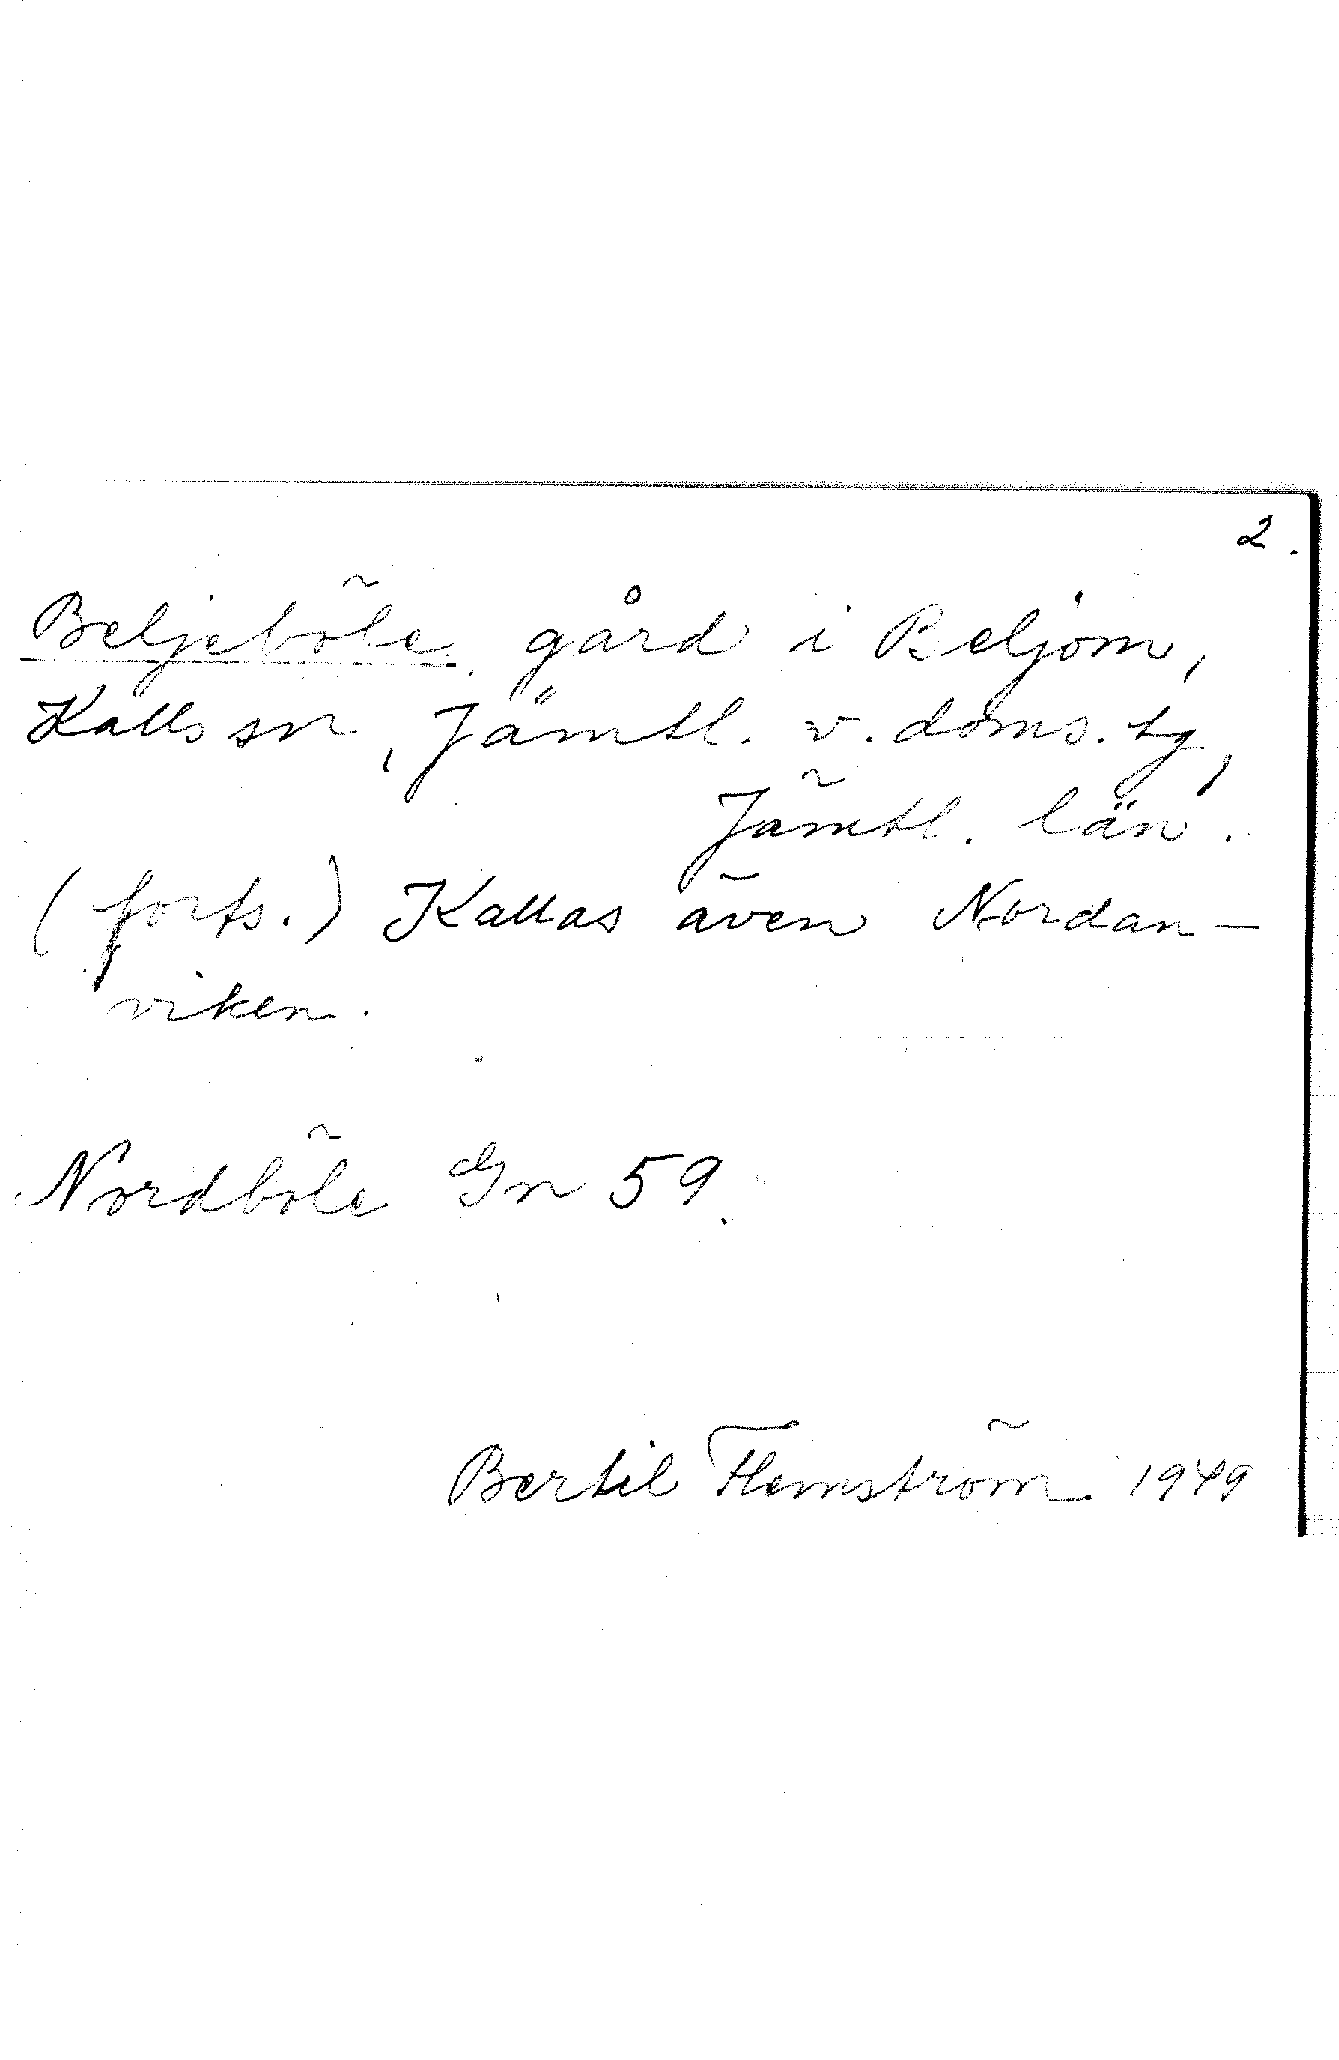 2.
Beljeböle, gård i Beljom,
Kalls sn, Jämtl. v. doms. tg,
Jämtl. län.
(forts.) Kallas även Nordan-
viken.
Nordböle Gn 59.
Bertil Flemström 1949